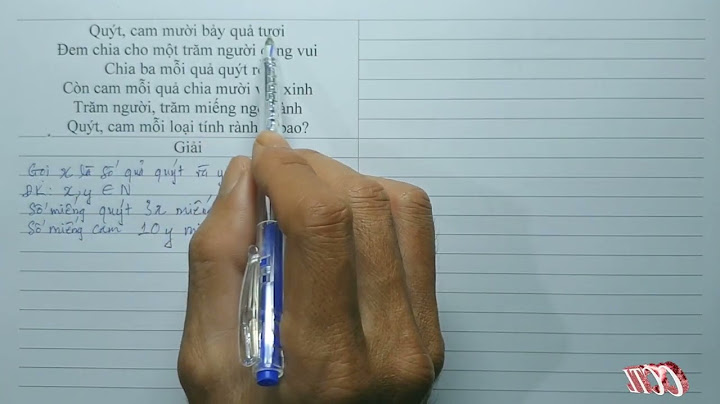 Quýt, cam mười bảy quả tươi
Đem chia cho một trăm người vui
Chia ba mỗi quả quýt
Còn cam mỗi quả chia mười xinh
Trăm người, trăm miếng
Quýt, cam mỗi loại tính rành bao?
Giải
Gọi x là số quả quýt và y
ĐK: x, y ∈ N
Số miếng quýt 3x
Số miếng cam 10y